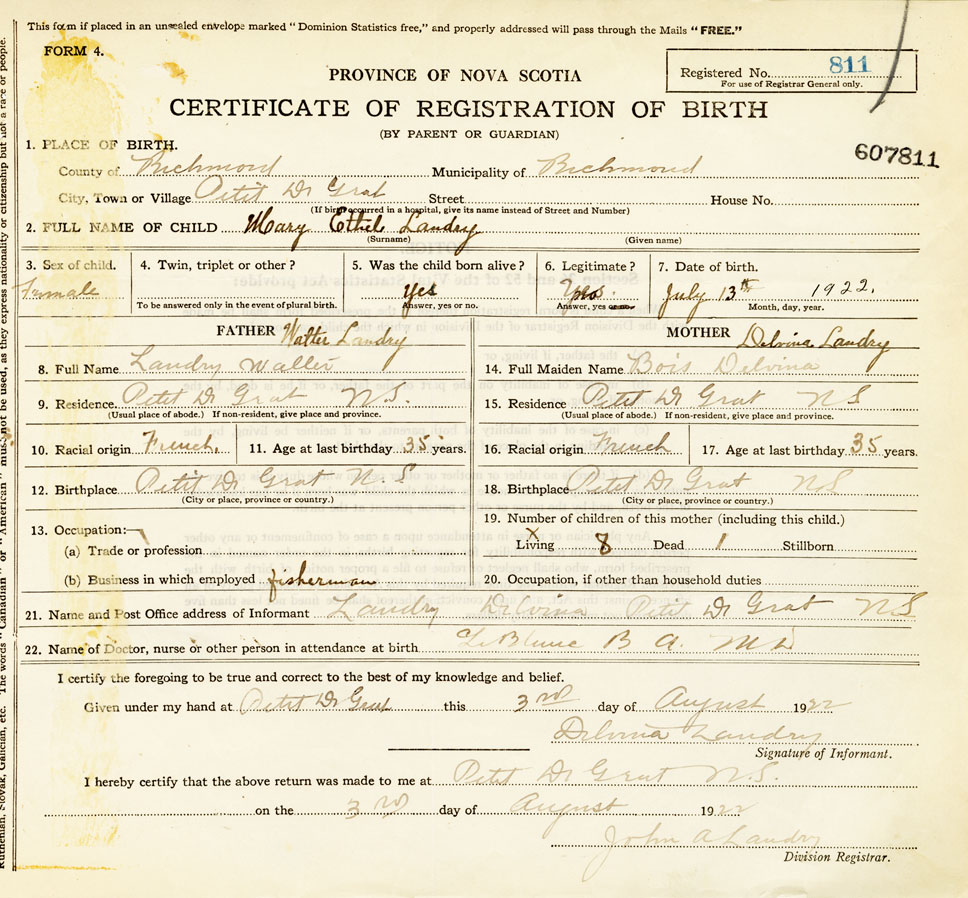 This form if placed in an unsealed envelope marked "Dominion Statistics free," and properly addressed will pass through the Mails "FREE."
FORM 4.
Registered No. 811
For use of Registrar General only.
PROVINCE OF NOVA SCOTIA
CERTIFICATE OF REGISTRATION OF BIRTH
(BY PARENT OR GUARDIAN)
607811
1. PLACE OF BIRTH.
County of Richmond Municipality of Richmond
City, Town or Village Petit De Grat Street House No.
(If birth occurred in a hospital, give its name instead of Street and Number)
2. FULL NAME OF CHILD Mary Ethel Landry
(Surname) (Given name)
3. Sex of child. 4. Twin, triplet or other? 5. Was the child born alive? 6. Legitimate? 7. Date of birth.
Female yes yes July 13th 1922.
To be answered only in the event of plural birth. Answer, yes or no. Answer, yes or no. Month, day, year.
FATHER Walter Landry MOTHER Delvina Landry
8. Full Name Landry Walter 14. Full Maiden Name Bois Delvina
9. Residence Petit De Grat N.S. 15. Residence Petit De Grat NS
(Usual place of abode.) If non-resident, give place and province. (Usual place of abode.) If non-resident, give place and province.
10. Racial origin French. 11. Age at last birthday 35 years. 16. Racial origin French 17. Age at last birthday 35 years.
12. Birthplace Petit De Grat N.S 18. Birthplace Petit De Grat NS
(City or place, province or country.) (City or place, province or country.)
13. Occupation:— 19. Number of children of this mother (including this child.)
(a) Trade or profession Living x 8 Dead 1 Stillborn
(b) Business in which employed fisherman 20. Occupation, if other than household duties
21. Name and Post Office address of Informant Landry Delvina Petit De Grat NS
22. Name of Doctor, nurse or other person in attendance at birth LeBlanc B A. MD
I certify the foregoing to be true and correct to the best of my knowledge and belief.
Given under my hand at Petit De Grat this 3rd day of August 1922
Delvina Landry
Signature of Informant.
I hereby certify that the above return was made to me at Petit De Grat N.S.
on the 3rd day of August 1922
John A Landry
Division Registrar.
Ruthenian, Slovak, Galician, etc. The words "Canadian" or "American" must not be used, as they express nationality or citizenship but not a race or people.